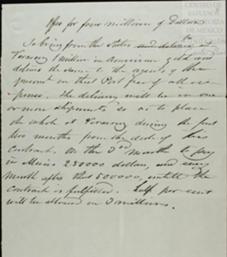 Offer for four millions of Dollars
To bring from the States and deliver at
Veracruz 1 million in American gold and
deliver the same to the agents of the
Government in that Port free of all ex-
pense. The delivery will be in one
or more shipments so as to place
the whole at Veracruz during the first
two months from the date of this
contract. On the 3rd month to pay
in Mexico 250000 dollars, and every
month after that 500000, until the
contract is fulfilled. Half per cent
will be allowed on 3 millions.